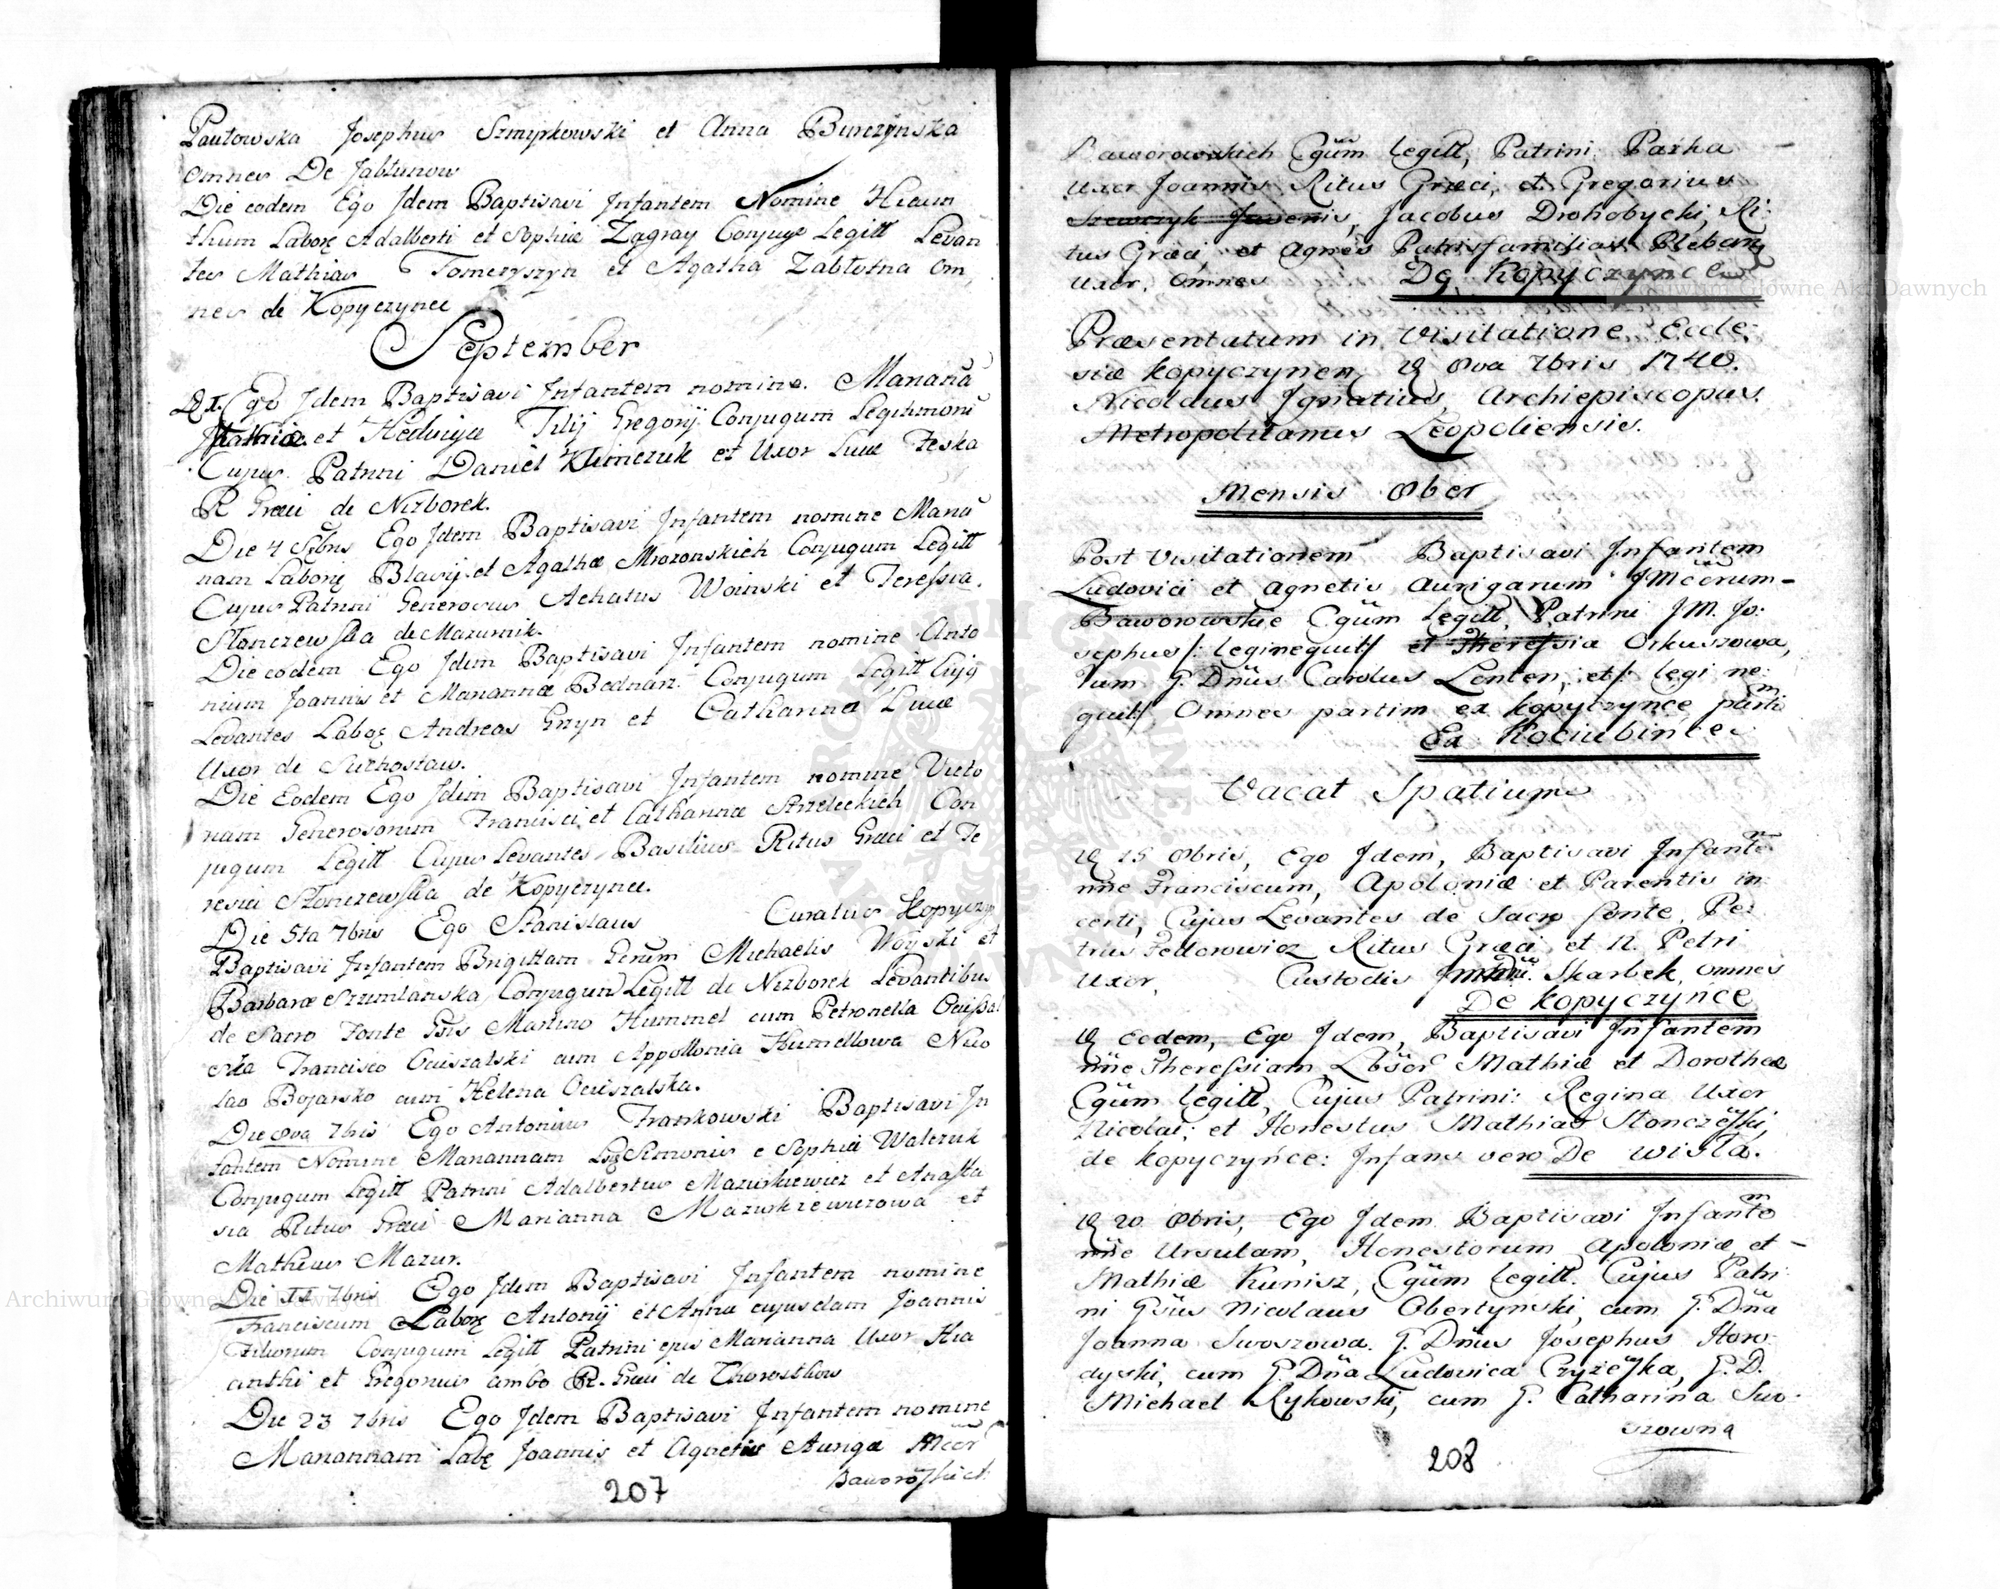 Pautowska Josephus Szmyrkowski et Anna Burczynska
omnes De Jabłunow
Die eodem Ego Idem Baptisavi Infantem Nomine Hiacin
thum Laborę Adalberti et Sophiæ Zagray Conjugū Legitt Levan
tes Mathias Tomczyszyn et Agatha Zabłotna om,
nes de Kopyczynce
September
D I. Ego Idem Baptisavi Infantem nomine. Marianā
et Hedvigæ Filij Gregorij Conjugum Legitimorū
Cujus Patrini Daniel Klimczuk et Uxor Lucæ Feska
R Græci de Nizborek.
Die 4 Sbris Ego Idem Baptisavi Infantem nomine Mariā
nam Laborię Blasij et Agathæ Mrozonskich Conjugum Legitt
Cujus Patrini Generosus Achatus Woinski et Teressia.
Słonczewska de Mazurnik.
Die eodem Ego Idem Baptisavi Infantem nomine Anto
nium Joannis et Mariannæ Bednarz Conjugum Legitt Cujq
Levantes Laborę Andreas Gnyp et Catharina Lucæ
Uxor de Suchostaw.
Die Eodem Ego Idem Baptisavi Infantem nomine Victo
riam Generosorum Francisci et Catharinæ Strzeleckich Con
jugum Legitt Cujus Levantes Basilius Ritus Græci et Te
resia Słonczewska de Kopyczynce.
Die 5ta 7bris Ego Stanislaus Curatus Kopyczyn
Baptisavi Infantem Brigittam Gerum Michaelis Woyski et
Barbaræ Szumlanska Conjugum Legitt de Nizborek Levantibus
de Sacro Fonte Gsis Martino Hummel cum Petronella Ociszal
ska Francisco Ociszalski cum Appollonia Humellowa Nico
lao Bojarsko cum Helena Ociszalska.
Die 8va 7bris Ego Antonius Frankowski Baptisavi In
fantem Nomine Mariannam Lbg Simonis e Sophiæ Walczuk
Conjugum Legitt Patrini Adalbertus Mazurkiewicz et Anasta
sia Ritus Græci Marianna Mazurkiewiczowa et
Matheus Mazur.
Die II 7bris Ego Idem Baptisavi Infantem nomine
Franciscum Laborę Antonij et Anna cujusdam Joannis
Filiorum Conjugum Legitt Patrini ejus Marianna Uxor Hia
cinthi et Gregorius ambo R. Græci de Chorostkow
Die 23 7bris Ego Idem Baptisavi Infantem nomine
Mariannam Labę Joannis et Agnetis Aurigæ Mcor
Baworoskich
207
Baworowskich Cgūm legitt, Patrini Parka
Uxor Joannis Ritus Græci, et Gregorius
Szewczyk Juvenis, Jacobus Drohobycki, Ri:
tus Græci, et Agnes Patrisfamilias Plebani
Uxor, omnes De Kopyczynce
Præsentatum in Visitatione Eccle:
siæ Kopyczynen D 8va 7bris 1740.
Nicolaus Ignatius Archiepiscopus
Metropolitanus Leopoliensis.
Mensis 8ber
Post Visitationem Baptisavi Infantem
Ludovici et Agnetis Aurigarum IMcōrum
Baworowskie Cgūm Legitt, Patrini J.M. Jo:
sephus /: legi nequit/ et Theressia Orkuszowa,
tum G. Dnūs Carolus Lenten, et /: legi ne:
quit/ Omnes partim ex Kopyczynce, partim
Ex Kociubince.
Vacat Spatium
D 15 8bris, Ego Idem, Baptisavi Infantem
nñe Franciscum, Apoloniæ et Parentis in
certi, Cujus Levantes de Sacro fonte, Pe:
trus Fedorowicz Ritus Græci, et N. Petri
Uxor, Custodis Skarbek, omnes
De Kopyczynce
D Eodem, Ego Idem, Baptisavi Infantem
nñe Theressiam, Lbser Mathiæ et Dorotheæ
Cgūm Legitt, Cujus Patrini: Regina Uxor
Nicolai; et Honestus Mathias Słonczeski,
de Kopyczyńce: Infans vero De Wisła.
D 20 8bris, Ego Idem Baptisavi Infantem
nñe Ursulam, Honestorum Apoloniæ et
Mathiæ Kunisz, Cgūm Legitt. Cujus Patri
ni Gsūs Nicolaus Obertynski, cum G. Dña
Joanna Swoszowa. G. Dnus Josephus Horo:
dyski, cum G. Dña Ludovica Czyżeska, G. D.
Michael Rykowski, cum G. Catharina Swo:
szowna
208
Archiwum Główne Akt Dawnych
Archiwum Główne Akt Dawnych